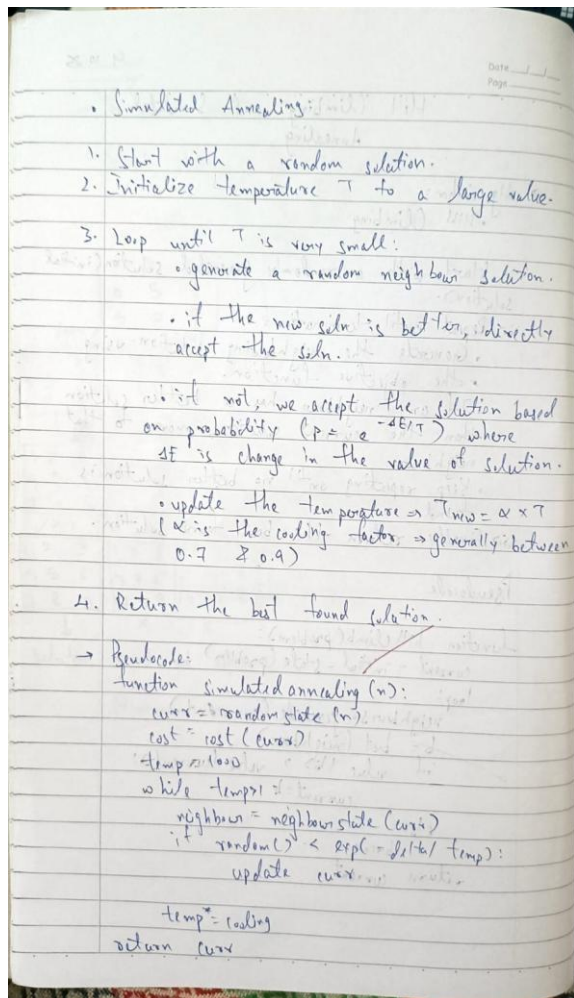 Date
Page
• Simulated Annealing:
1. Start with a random solution.
2. Initialize temperature T to a large value.
3. Loop until T is very small:
• generate a random neighbour solution.
• if the new soln is better, directly
accept the soln.
• if not, we accept the solution based
on probability (p = e^-ΔE/T) where
ΔE is change in the value of solution.
• update the temperature ⇒ Tnew = α × T
(α is the cooling factor, ⇒ generally between
0.7 & 0.9)
4. Return the best found solution.
→ Pseudocode:
function simulatedannealing (n):
curr = randomstate (n)
cost = cost (curr)
temp = 1000
while temp>1:
neighbour = neighbourstate (curr)
if random() < exp(-delta/temp):
update curr
temp* = cooling
return curr